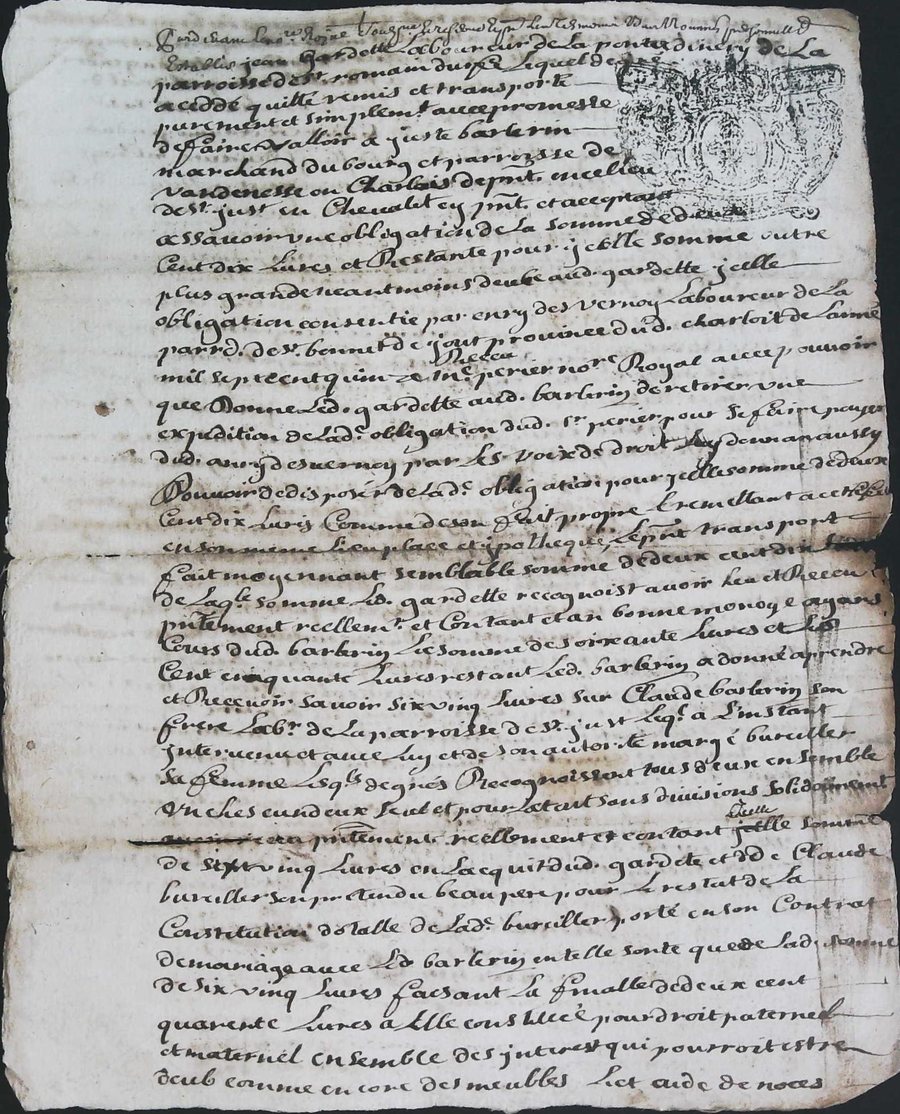 Pardevant le no.re Royal soubsigné et presents les tesmoins bas nommés personnell.t
Establis jean gardette Laboureur de La
parroisse de st. romain Lequel de gré
a ceddé quitté remis et transporté
purement et simplem.t avec promesse
de faire valloir a juste barlerin
marchand du bourg et parroisse de
vandenesse en Charlois de pnt. en ce lieu
de st. just en Chevalet cy pnt. et acceptant
assavoir une obligation de La somme de deux
Cent dix Livres et Restante pour jcelle somme outre
plus grande neantmoins deube aud. gardette jcelle
obligation consentie par enry des vernoy Laboureur de La
parr.d. de st. bonnet de joux province dud. charloit de Lanné
mil sept cent quinze Receu me. perier no.re Royal avec pouvoir
que Donne Led. gardette aud. barlerin de retirer une
expedition de Lad. obligation dud. sr. perier pour se faire payer
dud. anry desvernoy par Les voix de droit Luy donnan aussy
Pouvoir de disposer de Lad. obligation pour jcelle somme de deux
Cent dix Livres Comme de son fait propre Le mettant a cet effet
en son meme Lieu place et ypotheque, Le pnt transport
fait moyennant semblable somme de deux cent dix
de Laq.le somme Led. gardette recognoist avoir heu et Receu
pntement reellem.t et Contant et an bonne monoye ayans
Cours dud. barlerin La somme de soixante Livres et Les
Cent cinquante Livres restant Led. barlerin a donné a prendre
et Recevoir savoir six vinq Livres sur Claude barlerin son
frere Lab.r de La parroisse de st. just Leq.l a L'instant
jntervenu et avec Luy et de son autorité marg.e bureiller
sa femme Lesq.ls de grés Recognoissent tous deux en semble
un ches eun deux seul et pour Le tait sans divisions solidairement
pntement reellement et contant jcelle somme
de six vinq Livres en L'acquit dud. gardete et de Claude
bureiller son pretendu beaupere pour Le restat de La
Constitution dotalle de Lad. bureiller porté en son Contrat
de mariage avec Led. barlerin en telle sorte que de Lad. somme
de six vinq Livres faisant La finalle de deux cent
quarente Livres a Elle constituéé pour droit paternel
et maternel en semble des jnterest qui pourroit estre
deub comme en core des meubles Lict aide de noces